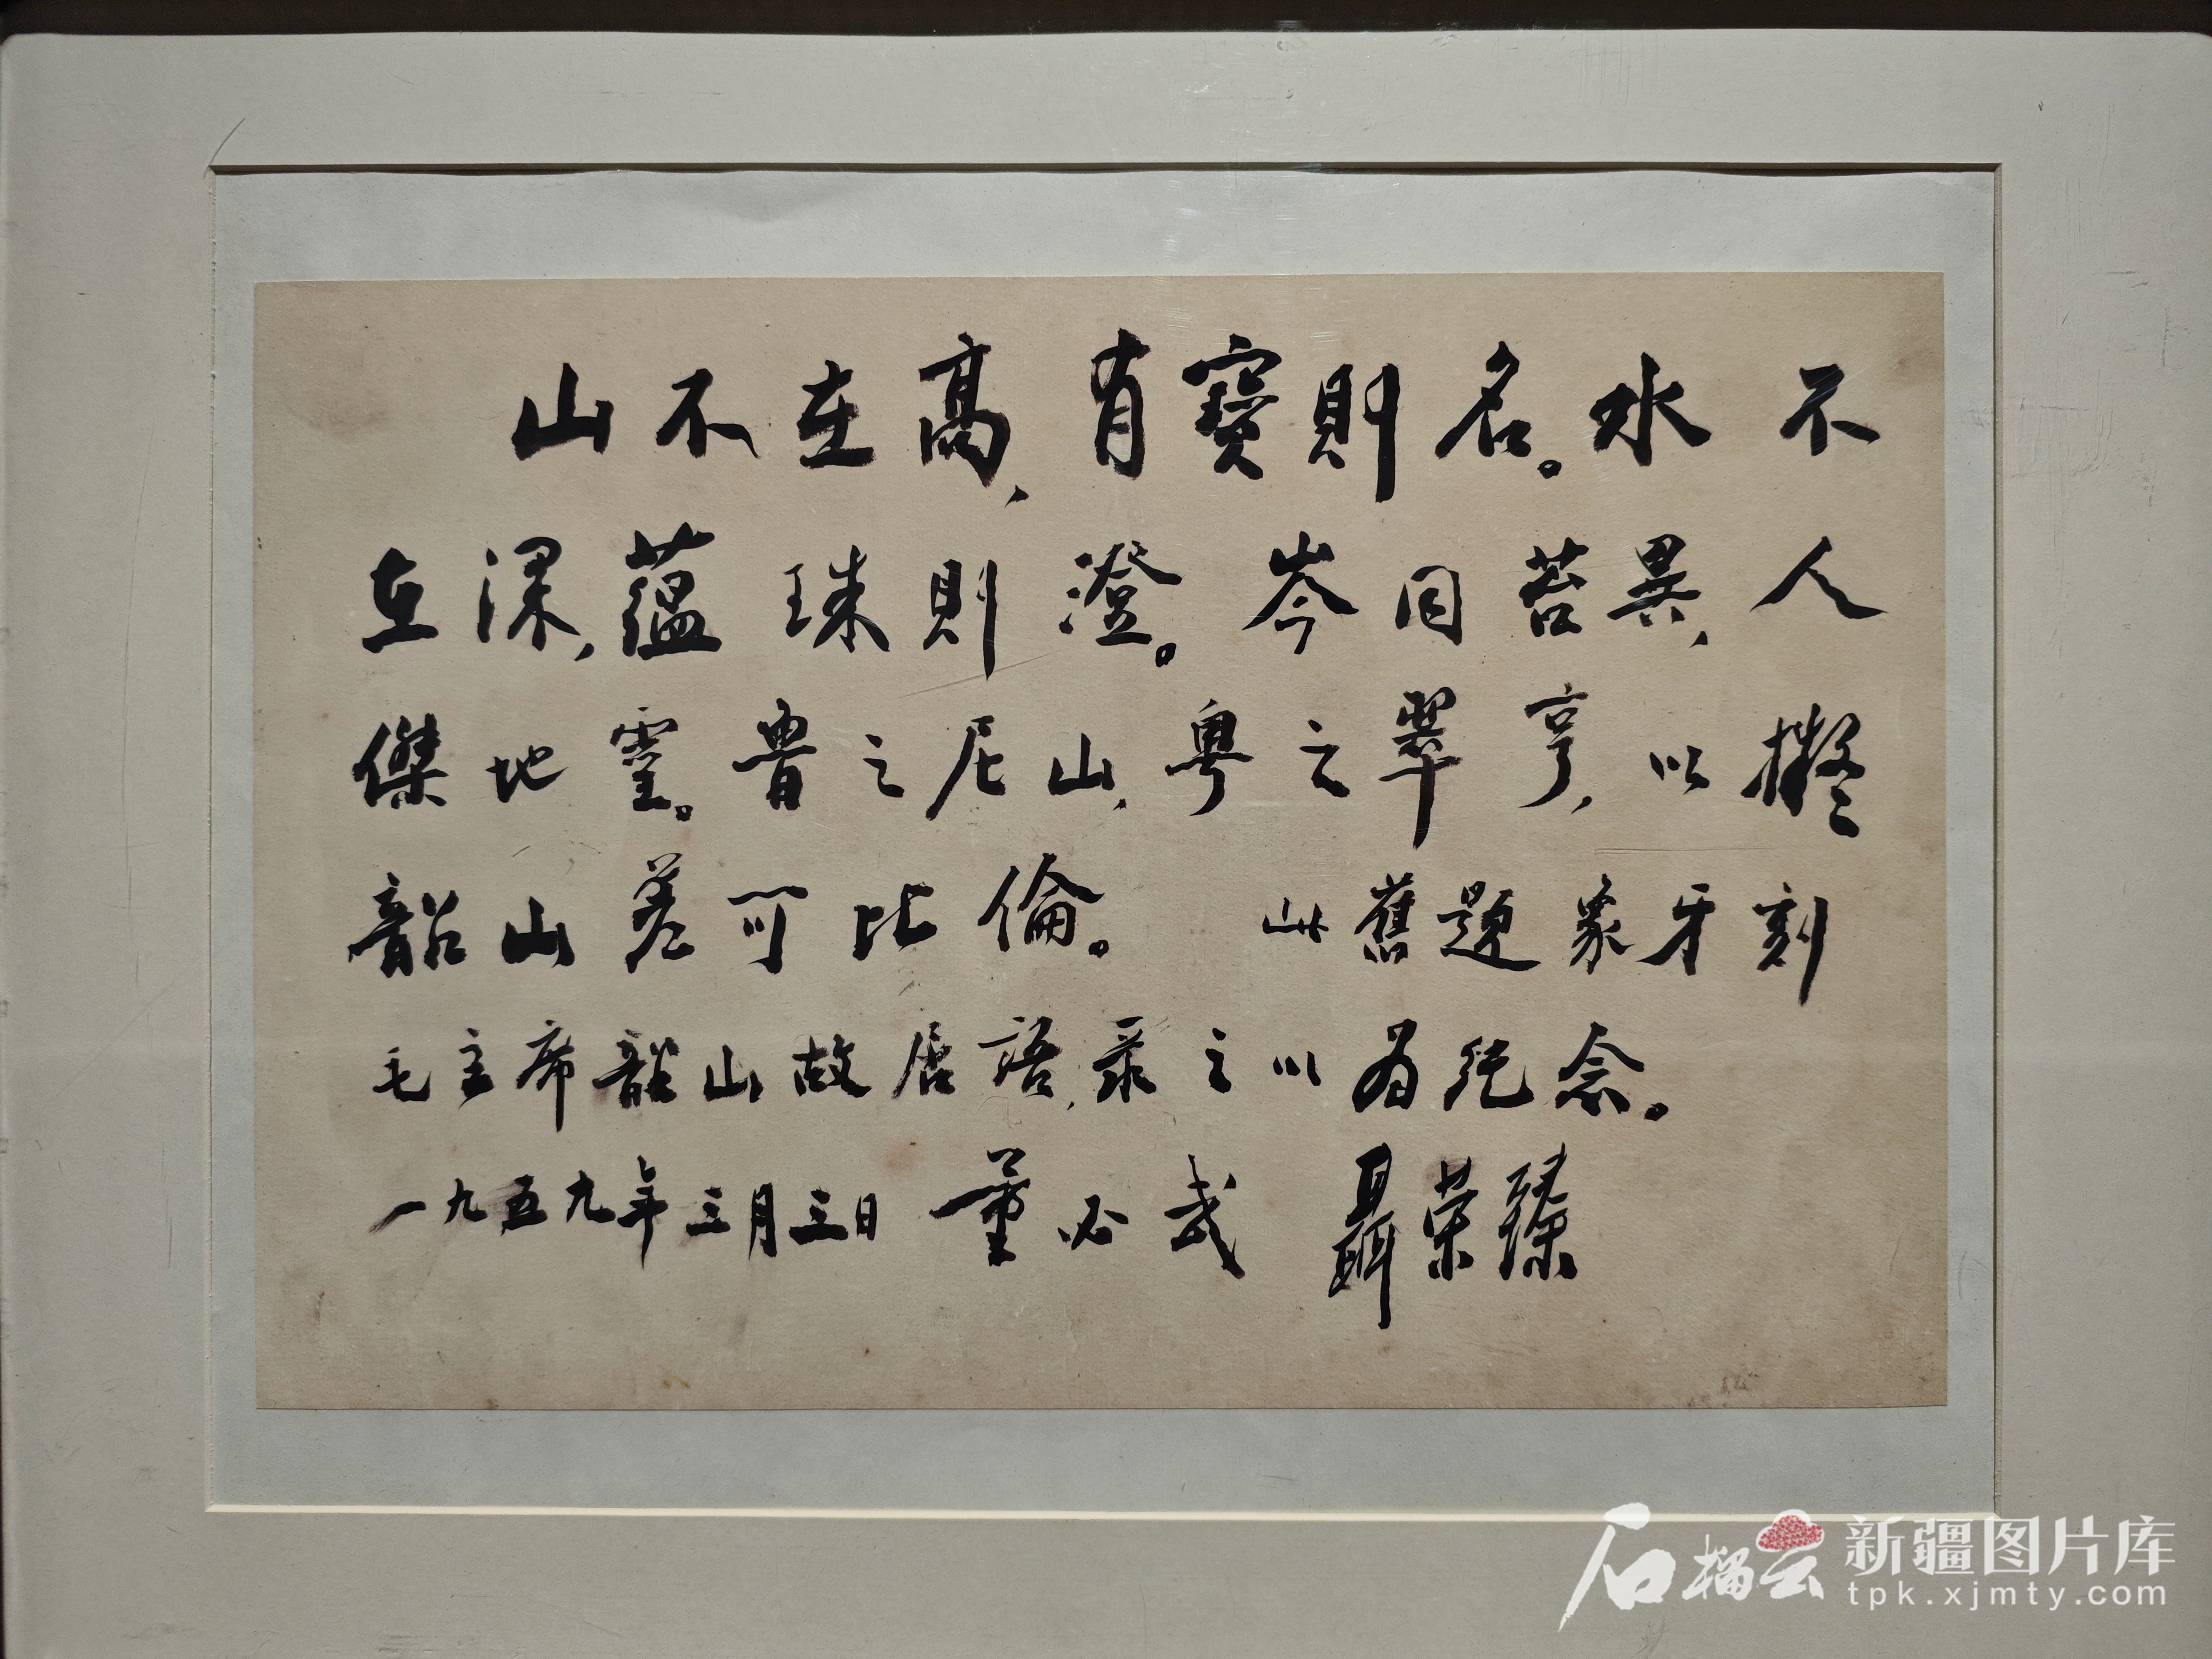 山不在高，有寶則名。水不
在深，蘊珠則澄。岑同苔異，人
傑地靈。魯之尼山，粵之翠亨，以擬
韶山差可比倫。 此舊題象牙刻
毛主席韶山故居語，录之以為纪念。
一九五九年三月三日 董必武 聶荣臻
石榴云 新疆图片库
tpk.xjmty.com